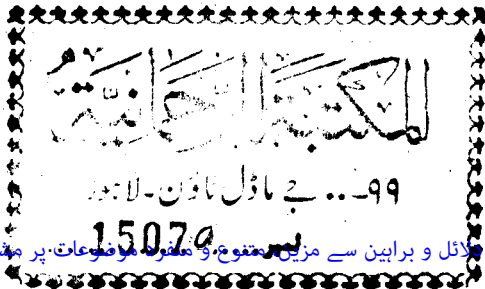 المكتبة الرحمانية
۹۹... جے ماڈل ٹاؤن۔ لاہور
نمبر ...15079...
دلائل و براہین سے مزین، متنوع و منفرد موضوعات پر